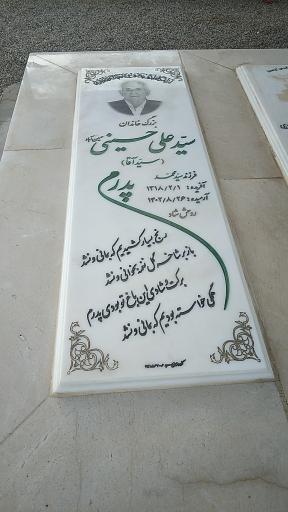 بزرگ خاندان
سید علی حسینی
(سید آقا)
فرزند سید محمد
آفریده: ۱۳۱۸/۲/۱
آرمیده: ۱۴۰۲/۸/۲۶
روحش شاد
پدرم
رنج بسیار کشیدیم که بمانی و نشد
باز بر شاخه گل نغمه بخوانی و نشد
برکت و شادی این باغ تو بودی پدرم
همگی خواسته بودیم که بمانی و نشد